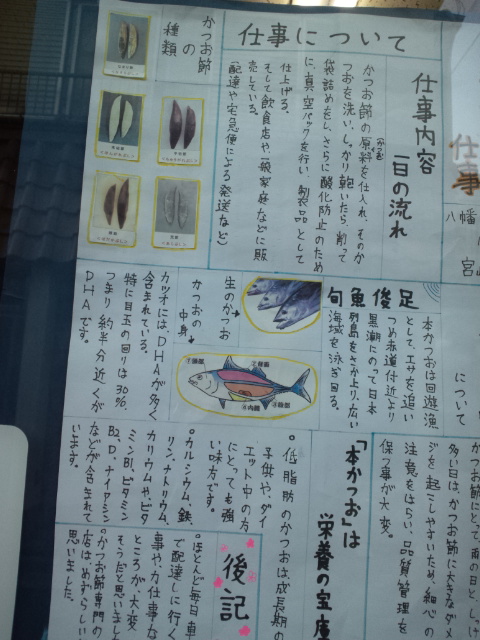 仕事について
仕事内容
一日の流れ
かつお節の原料を仕入れ、そのか
つおを洗い、しっかり乾いたら、削って
袋詰めをし、さらに酸化防止のため
に、真空パックを行い、製品として
仕上げる。
そして飲食店や一般家庭などに販
売している。
(配達や宅急便による発送など)
かつお節
の
種類
仕事
八幡
宮
について
旬魚俊足
本かつおは回遊漁
として、エサを追い
つめ赤道付近より
黒潮にのって日本
列島をさか上り、広い
海域を泳ぎ回る。
生のかつお
かつおの
中身
①頭部
②背部
③腹部
④内臓
カツオにはDHAが多く
含まれている。
特に目玉の回りは30%、
つまり約半分近くが
DHAです。
かつお節にとって、雨の日と、しっけ
多い日は、かつお節に大きなダメ
ジを起こしやすいため、細心の
注意をはらい、品質管理を
保つ事が大変。
「本かつお」は
栄養の宝庫
○低脂肪のかつおは成長期の
子供や、ダイ
エット中の方
にとっても強
い味方です。
○カルシウム、鉄、
リン、ナトリウム、
カリウムや、ビタ
ミンB1、ビタミン
B2、D、ナイアミン
などが含まれて
います。
後記
○ほとんど毎日車
で配達しに行く
事や、力仕事な
ところが大変
そうだと思いました。
○かつお節専門の
店は、めずらしいと
思いました。